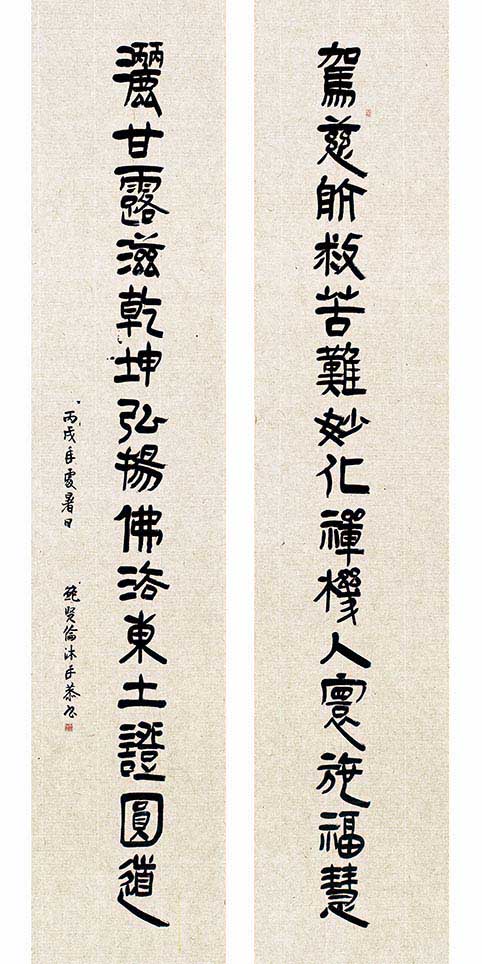 駕慈航救苦難妙化禪機人寰施福慧
灑甘露滋乾坤弘揚佛法東土證圓道
丙戌年處暑日 鮑賢倫沐手恭書